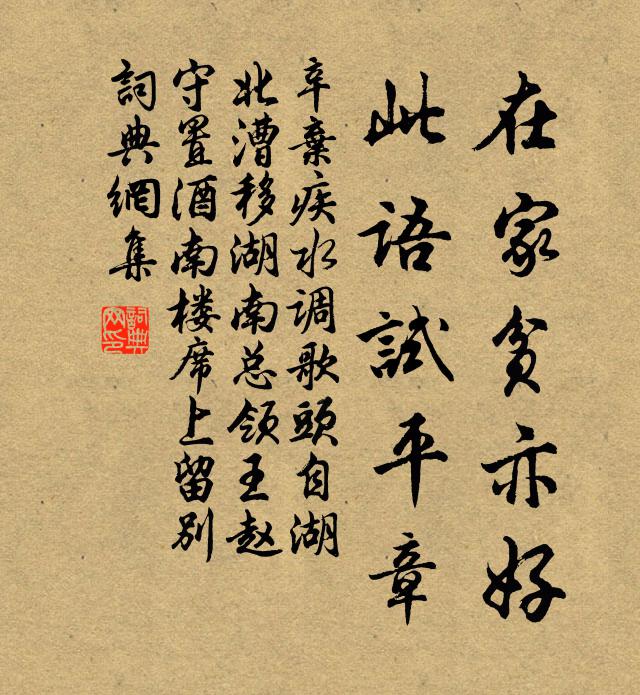 在家贫亦好
此语試平章
辛棄疾水调歌頭自湖
北漕移湖南总领王赵
守置酒南楼席上留别
詞典網集
詞典网印